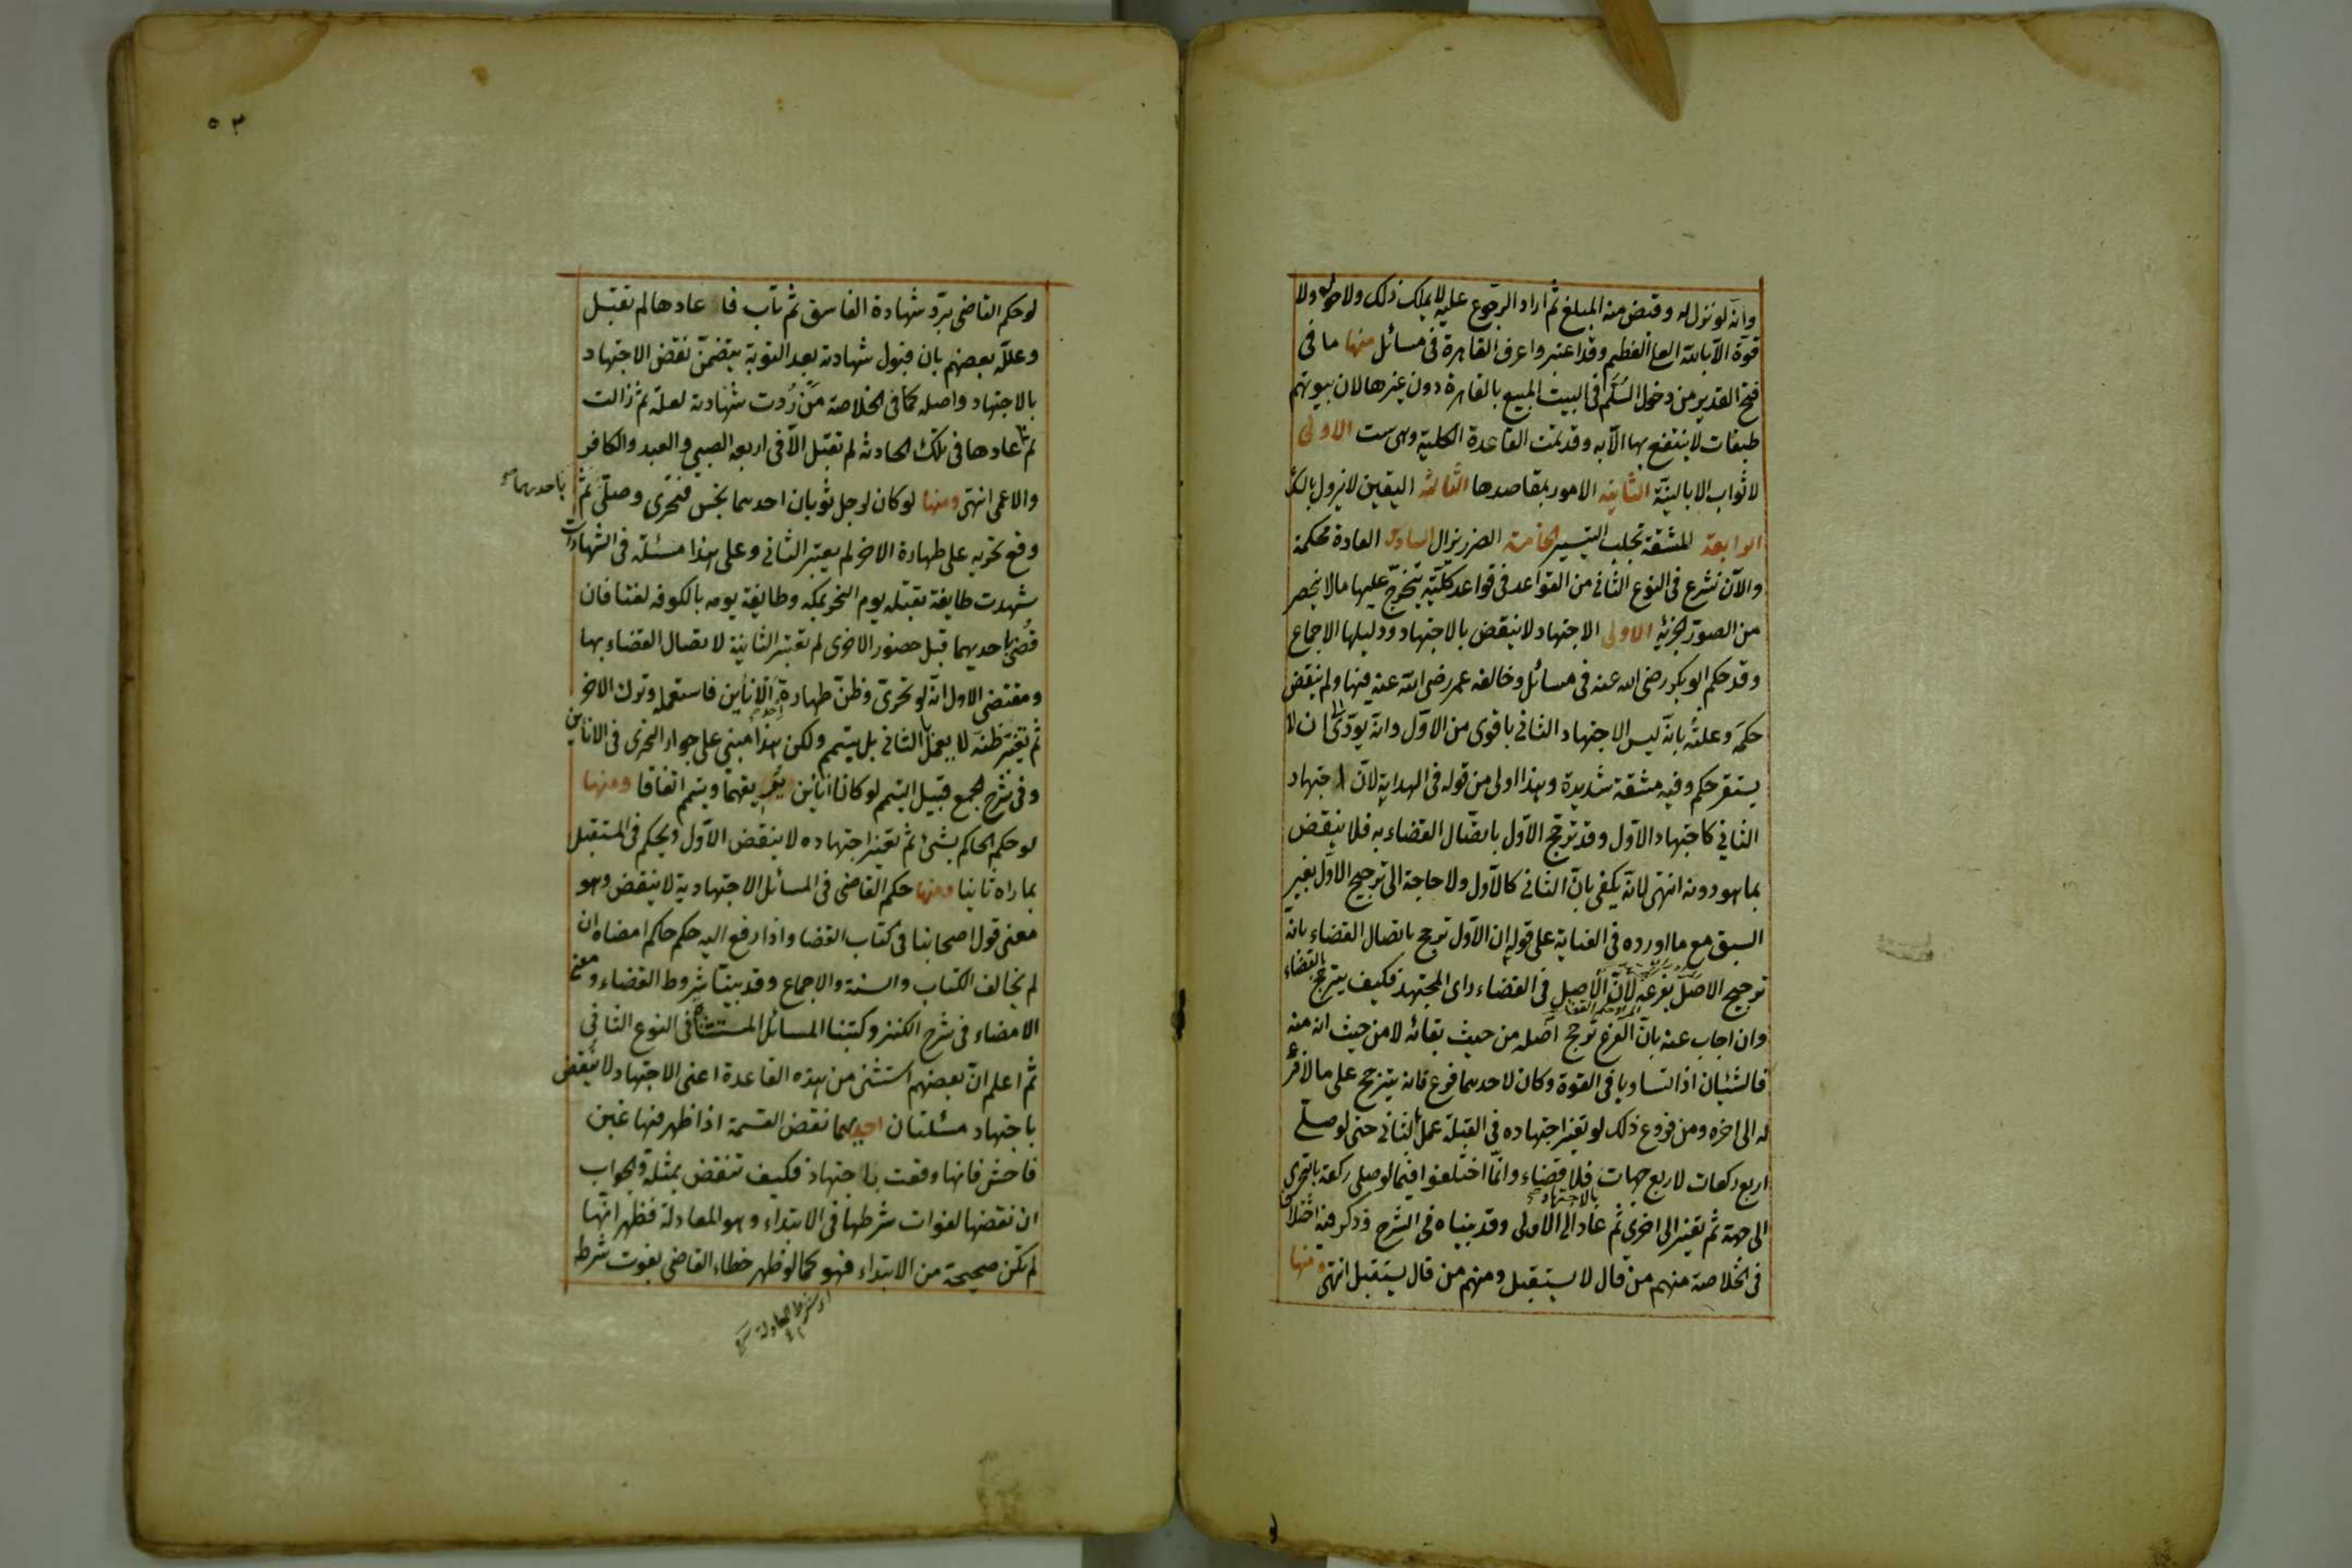 وانه لو نزل له وقبض منه المبلغ ثم اراد الرجوع عليه لا يملك ذلك ولا حول ولا
قوة الا بالله العلى العظيم وقد اعتبروا عرف القاهرة فى مسائل منها ما فى
فتح القدير من دخول السلم فى البيت المبيع بالقاهرة دون غيرها لان بيوتهم
طبقات لا ينتفع بها الا به وقد تمت القاعدة الكلية وهى ست الاولى
لا ثواب الا بالنية الثانية الامور بمقاصدها الثالثة اليقين لا يزول بالشك
الرابعة المشقة تجلب التيسير الخامسة الضرر يزال السادسة العادة محكمة
والآن نشرع فى النوع الثانى من القواعد فى قواعد كلية يتخرج عليها ما لا ينحصر
من الصور الجزئية الاولى الاجتهاد لا ينقض بالاجتهاد ودليلها الاجماع
وقد حكم ابو بكر رضى الله عنه فى مسائل وخالفه عمر رضى الله عنه فيها ولم ينقض
حكمه وعلته بانه ليس الاجتهاد الثانى باقوى من الاول وانه يؤدى الى ان لا
يستقر حكم وفيه مشقة شديدة وهذا اولى من قوله فى الهداية لان اجتهاد
الثانى كاجتهاد الاول وقد ترجح الاول باتصال القضاء به فلا ينقض
بما هو دونه انتهى لانه يكفى بان الثانى كالاول ولا حاجة الى ترجيح الاول بغير
السبق مع ما اورده فى العناية على قوله ان الاول ترجح باتصال القضاء بانه
ترجيح الاصل بفرعه لان الاصل فى القضاء راى المجتهد فكيف يترجح بالقضاء
وان اجاب عنه بان الفرع ترجح اصله من حيث بقائه لا من حيث انه منه
فالشيئان اذا تساويا فى القوة وكان لاحدهما فرع فانه يترجح على ما لا فرع
له الى اخره ومن فروع ذلك لو تغير اجتهاده فى القبلة عمل بالثانى حتى لو صلى
اربع ركعات لاربع جهات بالاجتهاد فلا قضاء وانما اختلفوا فيما لو صلى ركعة بالتحرى
الى جهة ثم تغير الى اخرى ثم عاد الى الاولى وقد بيناه فى الشرح وذكر فيه اختلاف
فى الخلاصة منهم من قال لا يستقبل ومنهم من قال يستقبل انتهى ومنها
٥٣
لو حكم القاضى برد شهادة الفاسق ثم تاب فاعادها لم تقبل
وعلله بعضهم بان قبول شهادته بعد التوبة يتضمن نقض الاجتهاد
بالاجتهاد واصله كما فى الخلاصة من ردت شهادته لعلة ثم زالت
ثم اعادها فى تلك الحادثة لم تقبل الا فى اربعة الصبى والعبد والكافر
والاعمى انتهى ومنها لو كان لرجل ثوبان احدهما نجس فتحرى وصلى باحدهما ثم
وقع تحريه على طهارة الاخر لم يعتبر الثانى وعلى هذا مسئلة فى الشهادات
شهدت طايفة بقتله يوم النحر بمكة وطايفة يومه بالكوفة لغتا فان
قضى باحديهما قبل حضور الاخرى لم تعتبر الثانية لاتصال القضاء بها
ومقتضى الاول انه لو تحرى وظن طهارة احد الانائين فاستعمله وترك الاخر
ثم تغير ظنه لا يعمل بالثانى بل يتيمم ولكن هذا مبنى على جواز التحرى فى الانائين
وفى شرح المجمع قبيل التيمم لو كانا انائين يريقهما ويتيمم اتفاقا ومنها
لو حكم الحاكم بشئ ثم تغير اجتهاده لا ينقض الاول ويحكم فى المستقبل
بما راه ثانيا ومنها حكم القاضى فى المسائل الاجتهادية لا ينقض وهو
معنى قول اصحابنا فى كتاب القضا واذا رفع اليه حكم حاكم امضاه ان
لم يخالف الكتاب والسنة والاجماع وقد بينا شروط القضاء ومعنى
الامضاء فى شرح الكنز وكتبنا المسائل المستثناة فى النوع الثانى
ثم اعلم ان بعضهم استثنى من هذه القاعدة اعنى الاجتهاد لا ينقض
باجتهاد مسئلتان احديهما نقض القسمة اذا ظهر فيها غبن
فاحش فانها وقعت بالاجتهاد فكيف تنقض بمثله والجواب
ان نقضها لفوات شرطها فى الابتداء وهو المعادلة فظهر انها
لم تكن صحيحة من الابتداء فهو كما لو ظهر خطاء القاضى بفوت شرط